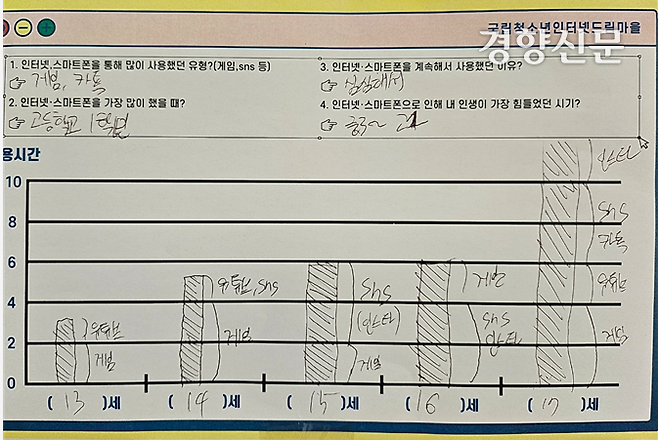 국립청소년인터넷드림마을
경향신문
1. 인터넷,스마트폰을 통해 많이 사용했던 유형?(게임,sns 등)
게임, 카톡
3. 인터넷·스마트폰을 계속해서 사용했던 이유?
심심해서
2. 인터넷·스마트폰을 가장 많이 했을 때?
고등학교 1학년
4. 인터넷·스마트폰으로 인해 내 인생이 가장 힘들었던 시기?
고1
용시간
인스타
10
8
sns
카톡
6
유튜브, sns
게임
유튜브
4
유튜브
게임
sns
(인스타)
sns
인스타
게임
2
게임
게임
0
( 13 )세
( 14 )세
( 15 )세
( 16 )세
( 17 )세